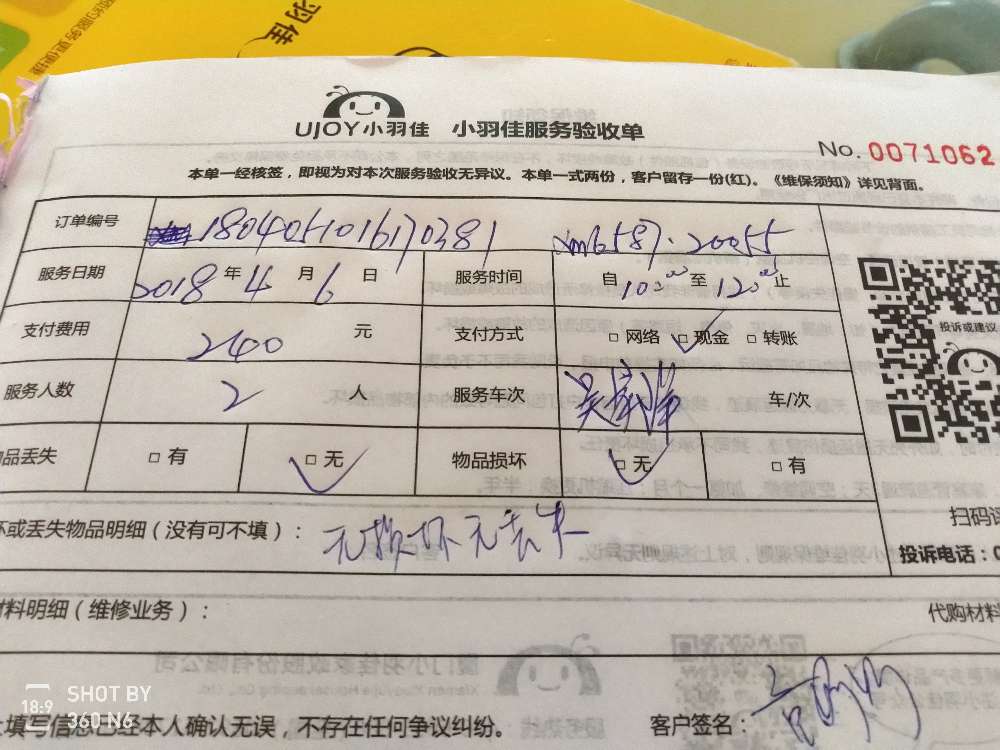 UJOY小羽佳 小羽佳服务验收单
No. 0071062
本单一经核签，即视为对本次服务验收无异议。本单一式两份，客户留存一份(红)。《维保须知》详见背面。
订单编号 1804051016170381
服务日期 2018年4月6日 服务时间 自10:00至12:00止
支付费用 240元 支付方式 □网络 □现金 □转账
服务人数 2人 服务车次 车/次
品丢失 □有 □无 物品损坏 □无 □有
投诉或建议
坏或丢失物品明细（没有可不填）： 无损坏无丢失
扫码
投诉电话：0
材料明细（维修业务）： 代购材料
填写信息已经本人确认无误，不存在任何争议纠纷。 客户签名：
SHOT BY
360 N6
18:9